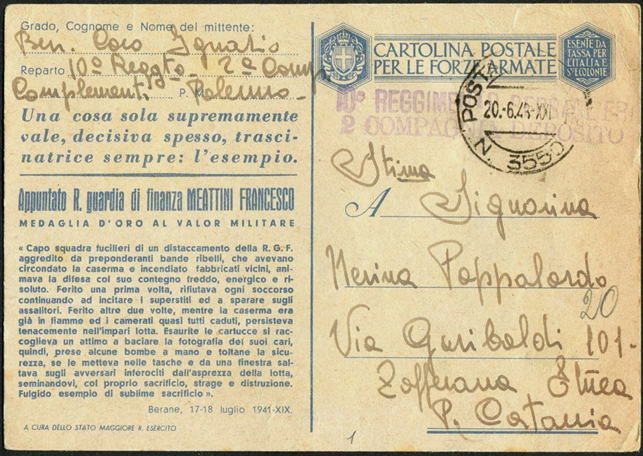 Grado, Cognome e Nome del mittente:
Ignazio
Reparto 10º Reggto 2ª Comp
Complementi P. M. Palermo
Una cosa sola supremamente
vale, decisiva spesso, trasci-
natrice sempre: l'esempio.
Appuntato R. guardia di finanza MEATTINI FRANCESCO
MEDAGLIA D'ORO AL VALOR MILITARE
« Capo squadra fucilieri di un distaccamento della R. G. F.
aggredito da preponderanti bande ribelli, che avevano
circondato la caserma e incendiato fabbricati vicini, ani-
mava la difesa col suo contegno freddo, energico e ri-
soluto. Ferito una prima volta, rifiutava ogni soccorso
continuando ad incitare i superstiti ed a sparare sugli
assalitori. Ferito altre due volte, mentre la caserma era
già in fiamme ed i camerati quasi tutti caduti, persisteva
tenacemente nell'impari lotta. Esaurite le cartucce si rac-
coglieva un attimo a baciare la fotografia dei suoi cari,
quindi, prese alcune bombe a mano e toltane la sicu-
rezza, se le metteva nelle tasche e da una finestra sal-
tava sugli avversari inferociti dall'asprezza della lotta,
seminandovi, col proprio sacrificio, strage e distruzione.
Fulgido esempio di sublime sacrificio »
Berane, 17-18 luglio 1941-XIX.
A CURA DELLO STATO MAGGIORE R. ESERCITO
CARTOLINA POSTALE
PER LE FORZE ARMATE
ESENTE DA
TASSA PER
L'ITALIA E
SUE COLONIE
10º REGGIMENTO BERSAGLIERI
2 COMPAGNIA DEPOSITO
POSTA
20.6.4
N. 3550
Stima
A Signorina
Nerina Pappalardo
20
Via Garibaldi 101-
Zafferana Etnea
P. Catania
1